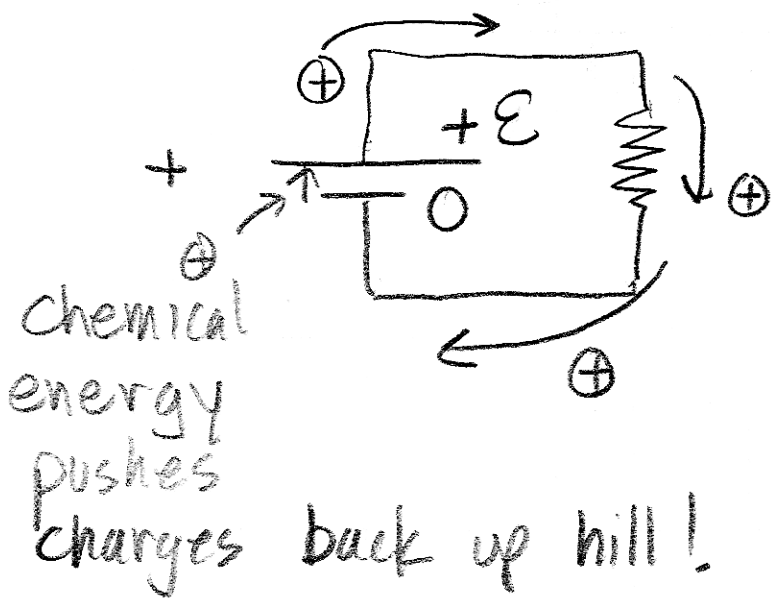 ⊕
+ ℰ
+
0
⊕
⊕
⊕
chemical
energy
pushes
charges back up hill!